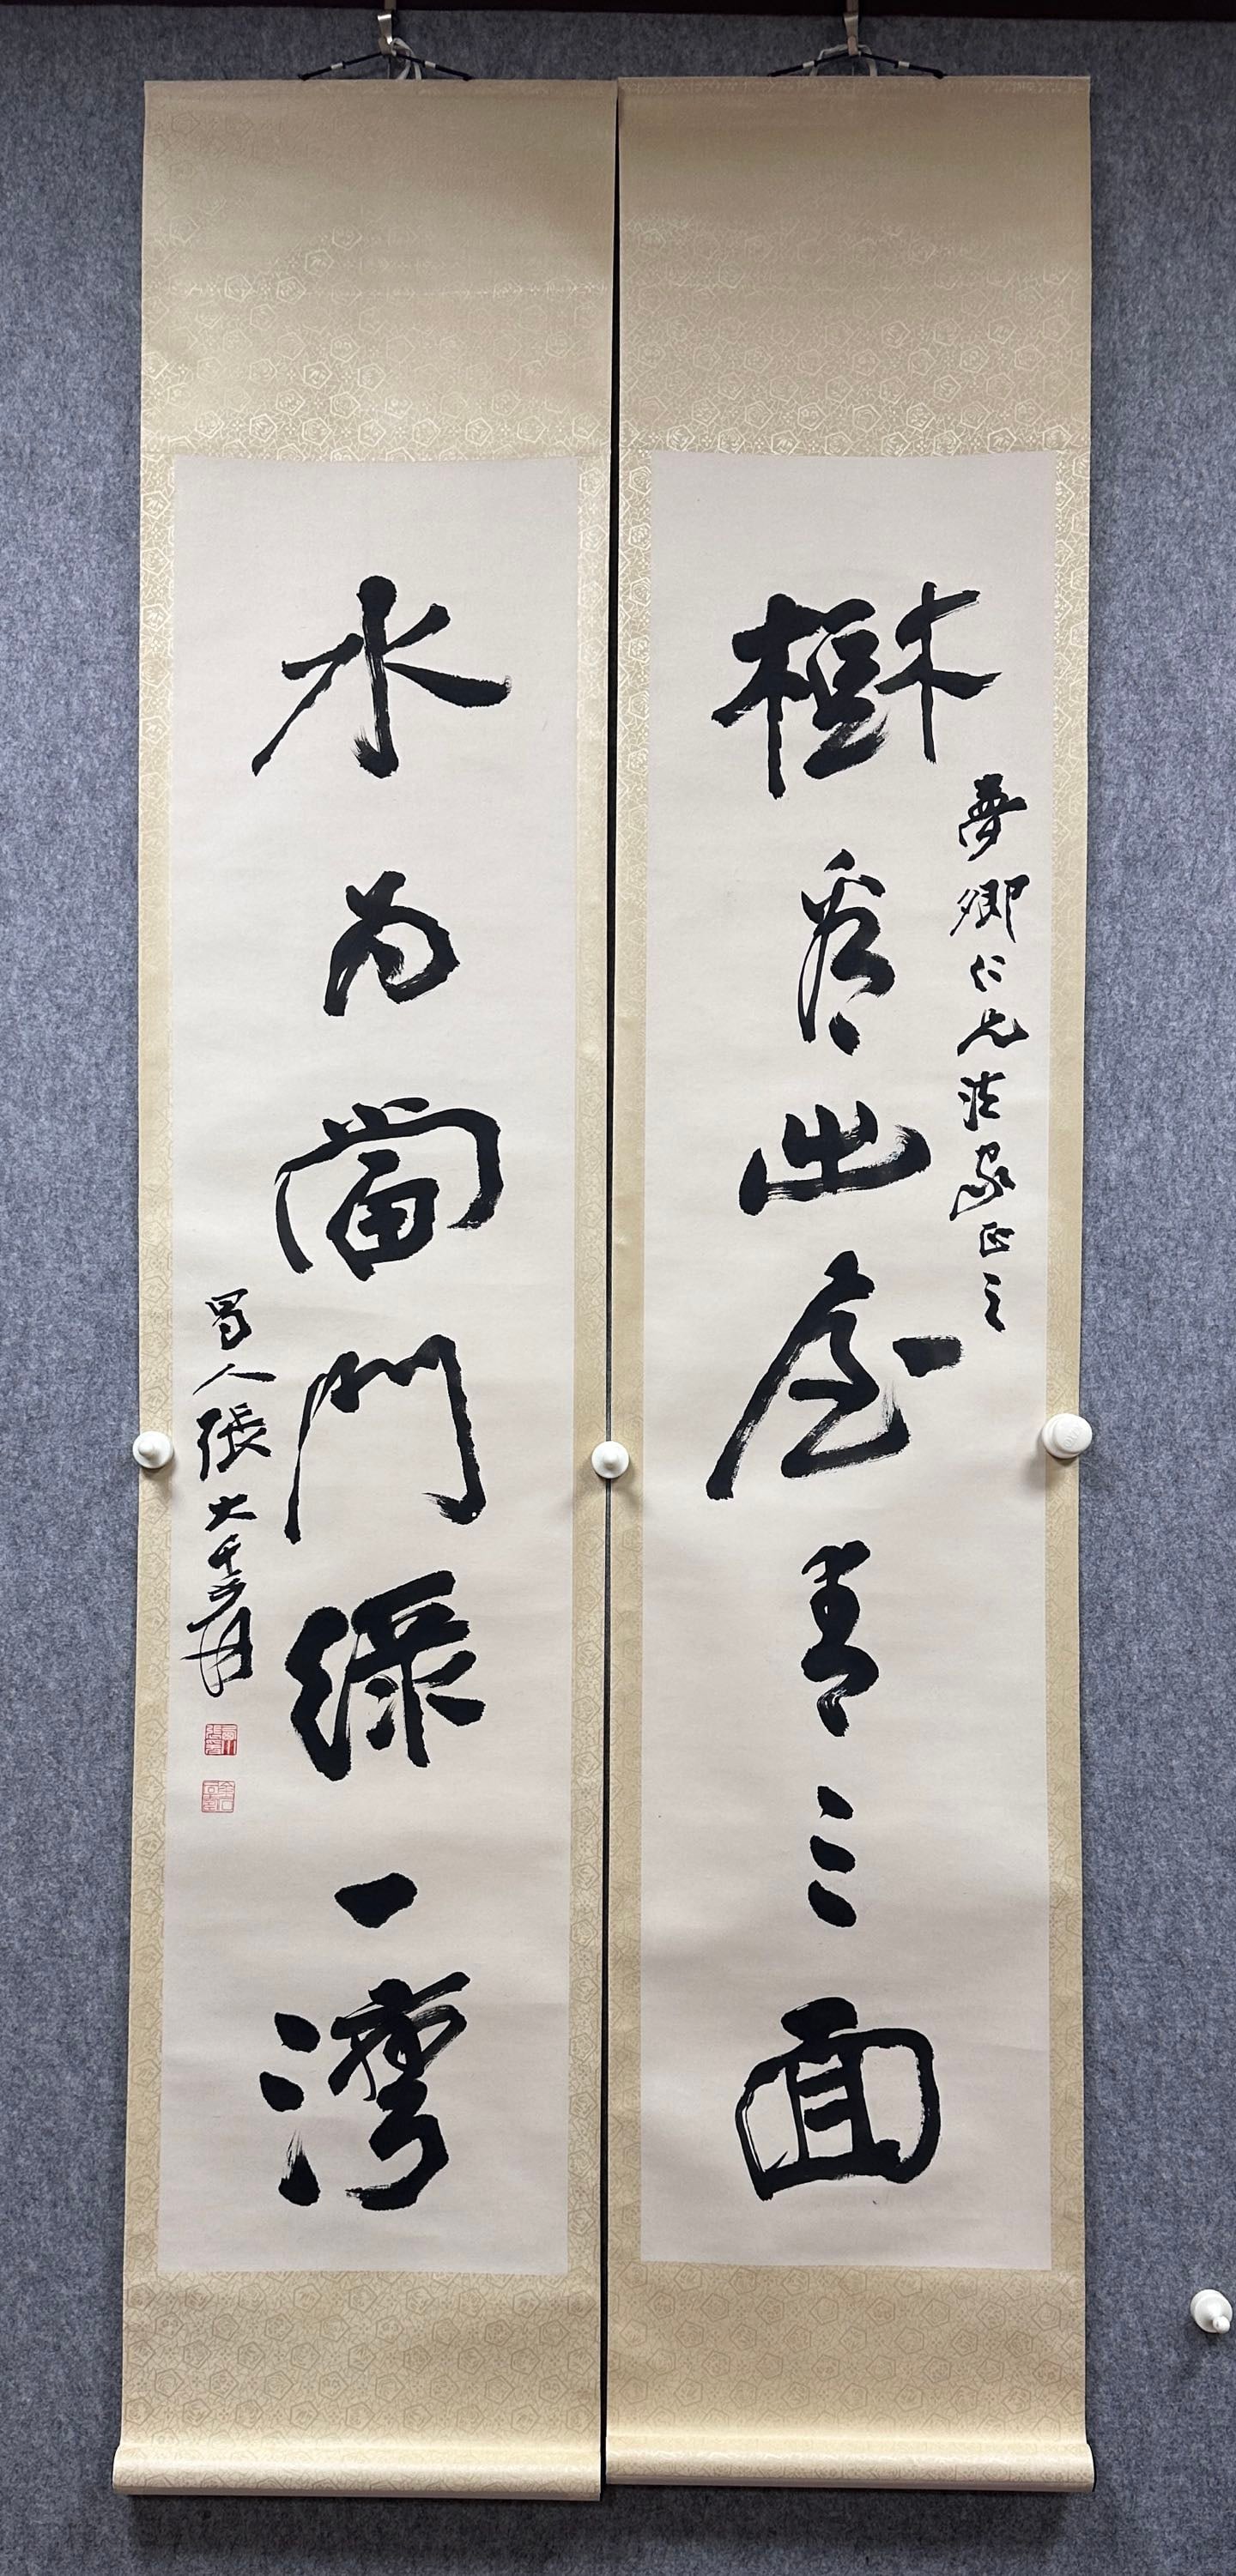 樹看出屋青三面
夢卿仁兄法家正之
水为當門綠一灣
蜀人張大千爰